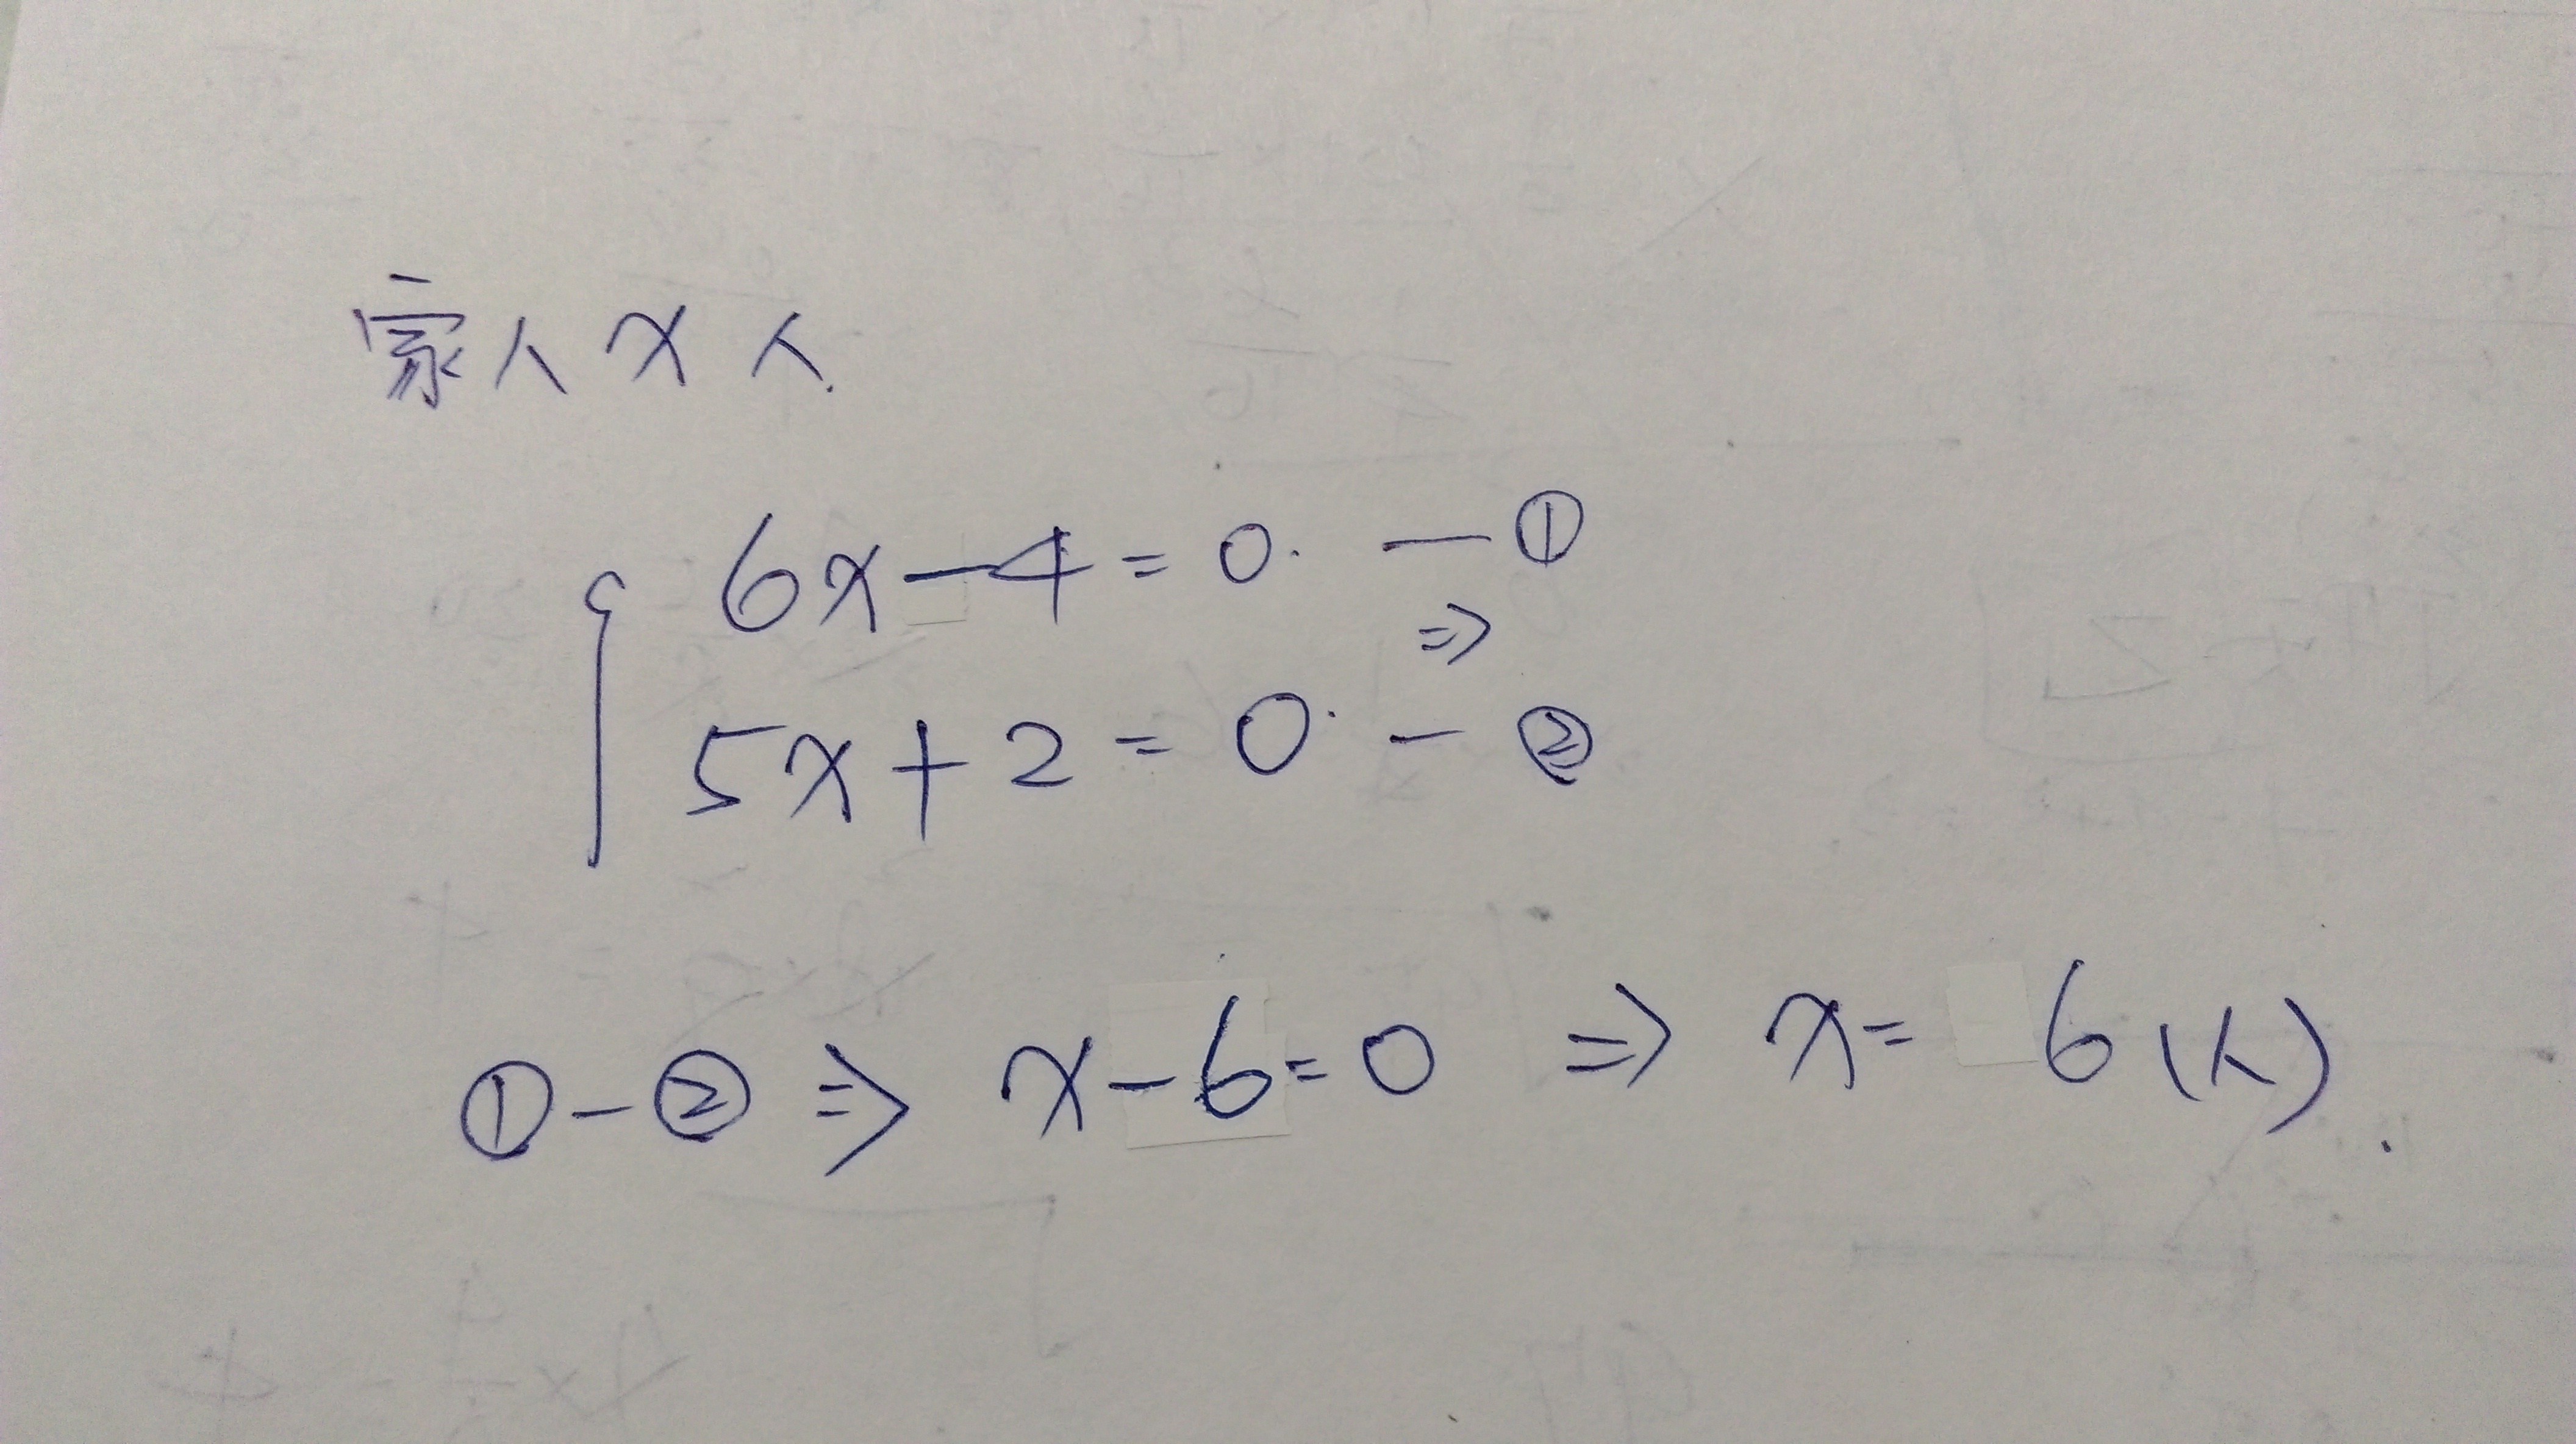 家人 x 人.
6x-4=0. —①
⇒
5x+2=0. -②
①-② ⇒ x-6=0 ⇒ x= 6(人).